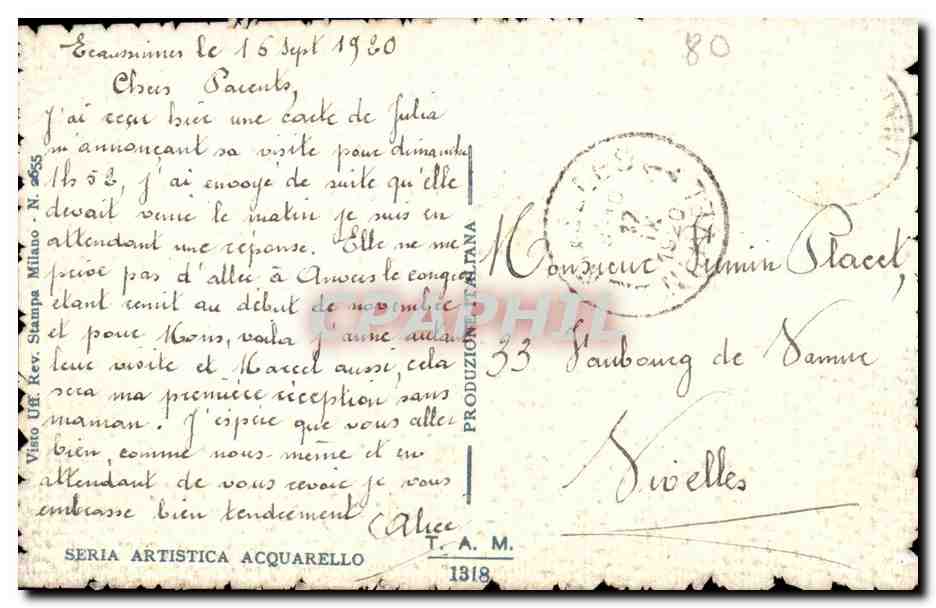 Ecaussinnes le 16 Sept 1920
Chers Parents,
J'ai reçu hier une carte de Julia
m'annonçant sa visite pour dimanche
11h52, j'ai envoyé de suite qu'elle
devait venir le matin je suis en
attendant une réponse. Elle ne me
prive pas d'aller à Anvers le congrès
étant remit au début de novembre
et pour Mons, voila j'aime autant
leur visite et Marcel aussi, cela
sera ma première réception sans
maman. J'espère que vous allez
bien, comme nous-même et en
attendant de vous revoir je vous
embrasse bien tendrement
Alice
SERIA ARTISTICA ACQUARELLO
Visto Uff. Rev. Stampa Milano - N. 2655
PRODUZIONE ITALIANA
T. A. M.
1318
80
Monsieur Firmin Placet,
33 Faubourg de Namur
Nivelles
1920
CPAPHIL